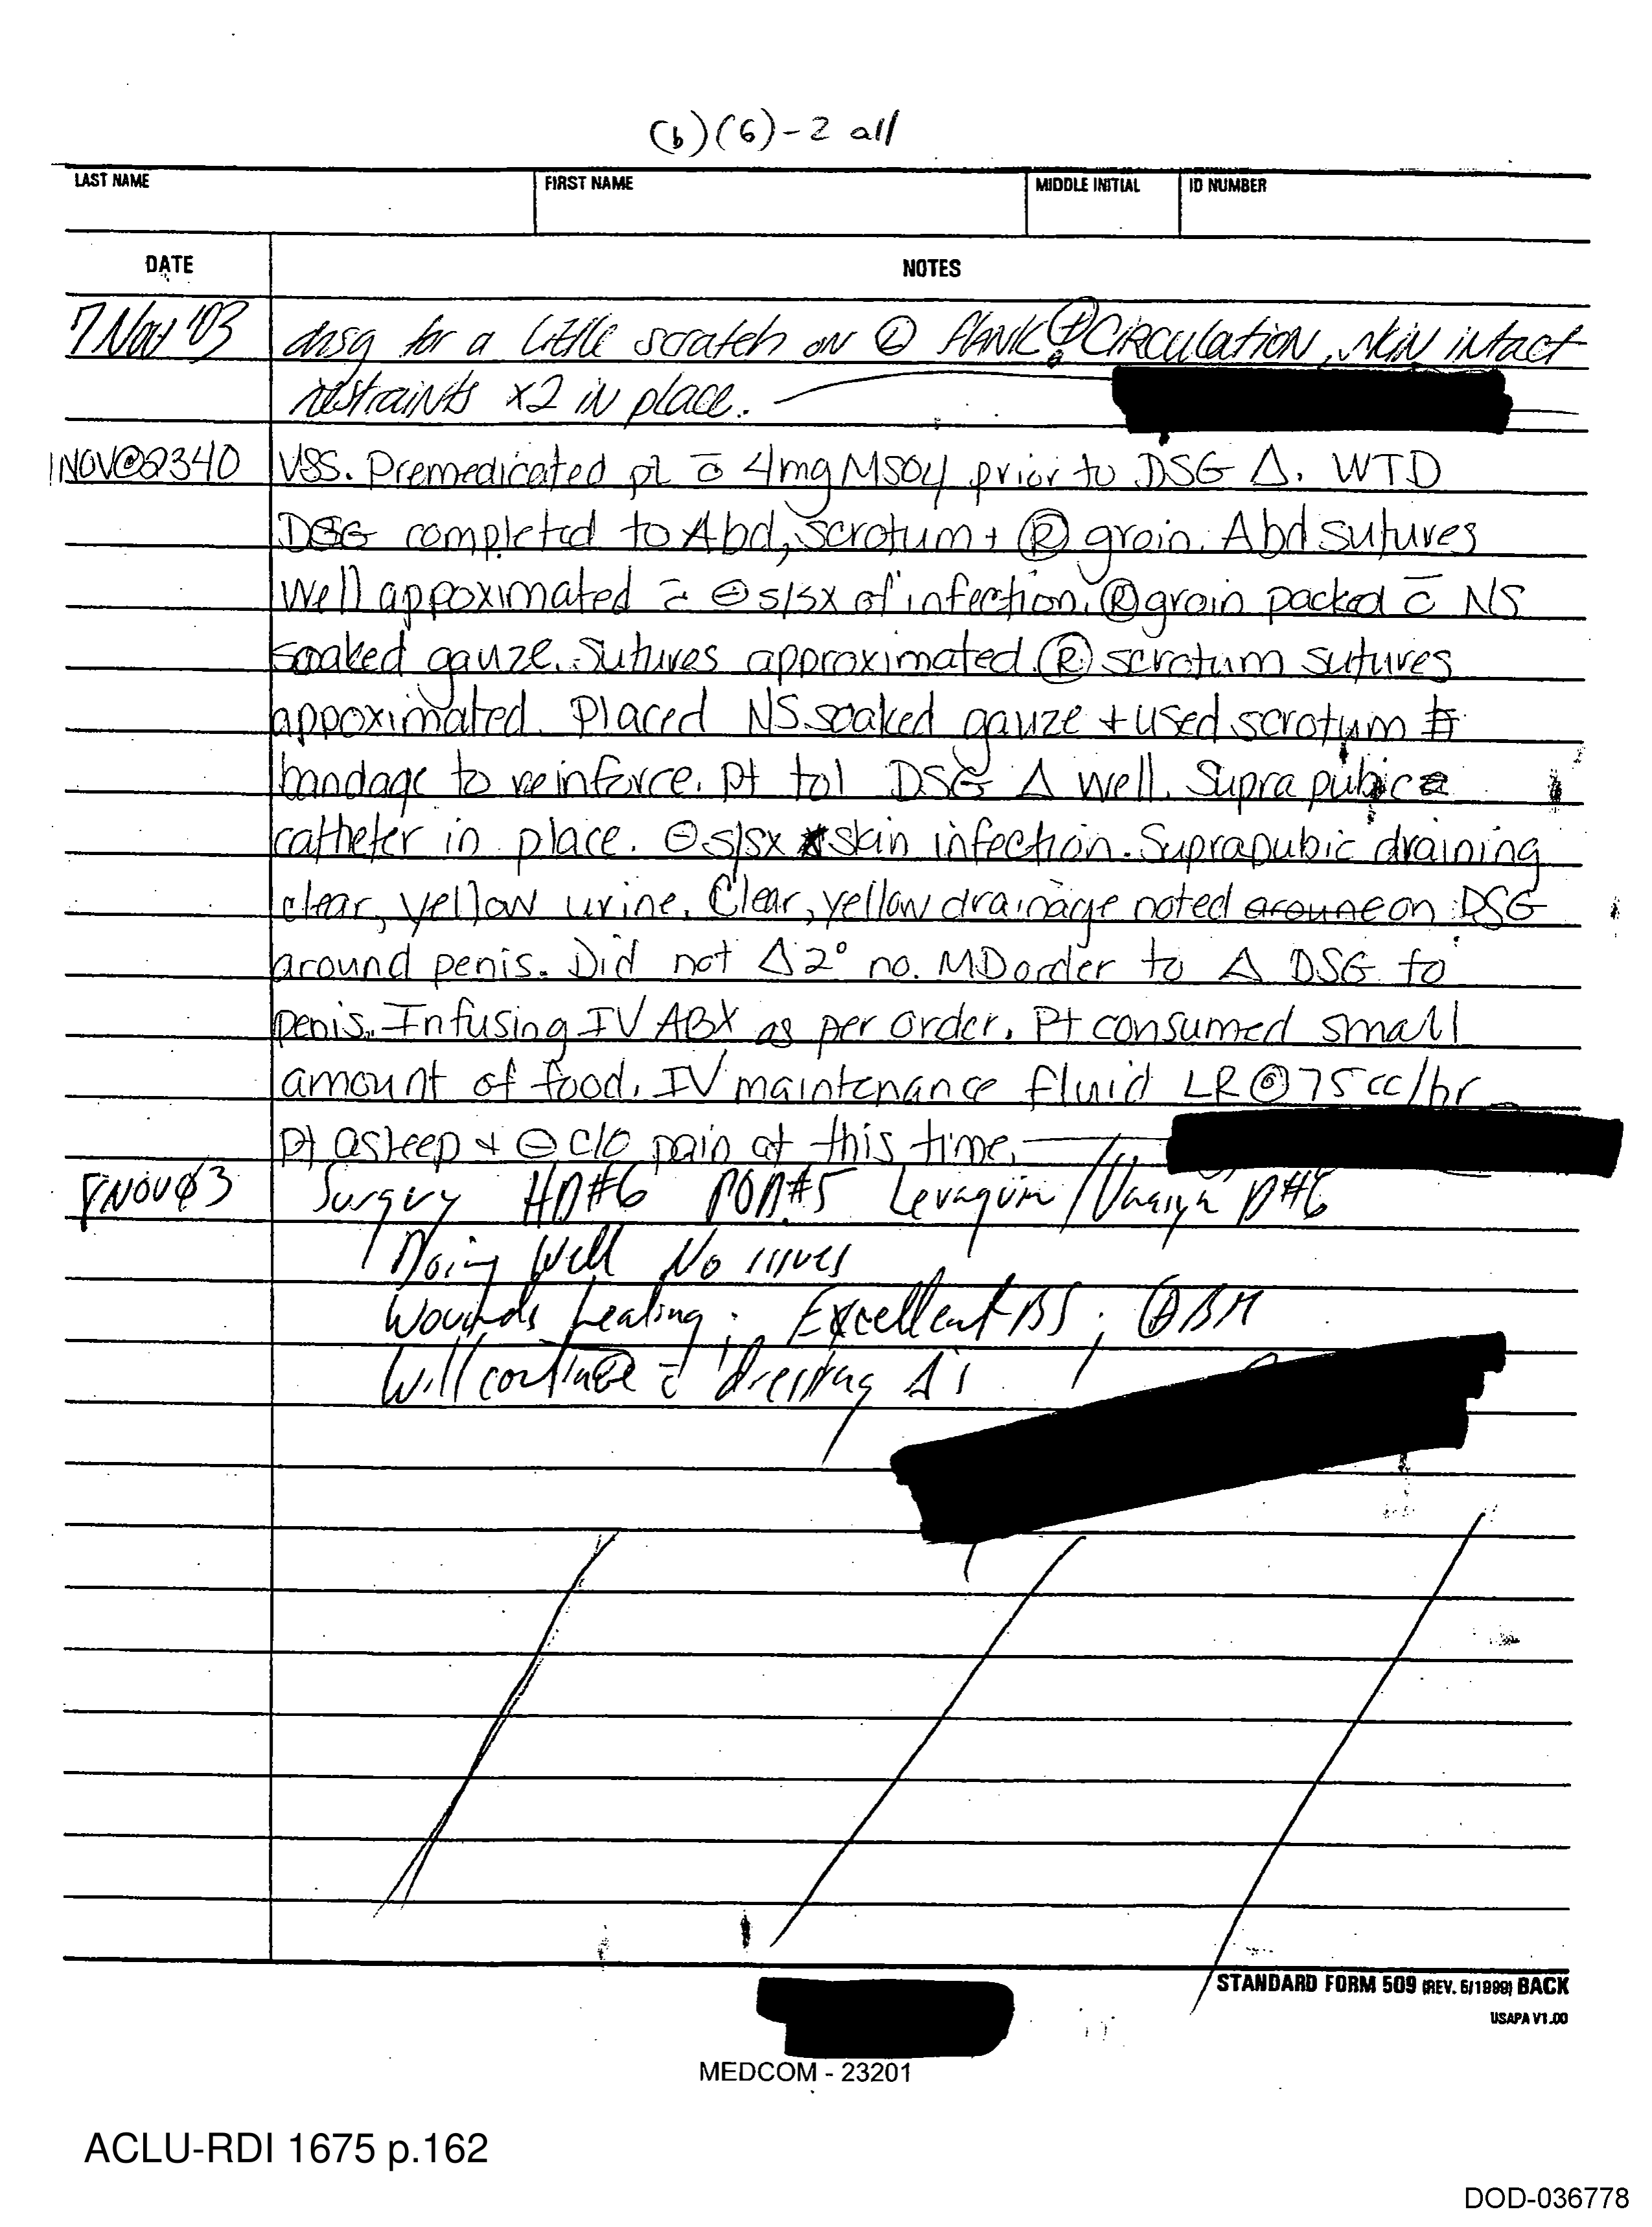 (b)(6)-2 all
LAST NAME FIRST NAME MIDDLE INITIAL ID NUMBER
DATE NOTES
7 Nov '03 drsg for a little scratch on Ⓛ flank. ⊕ Circulation, skin intact
restraints x2 in place.
NOV@2340 VSS. Premedicated pt c̄ 4mg MSO4 prior to DSG Δ. WTD
DSG completed to Abd, scrotum + Ⓡ groin. Abd sutures
well appoximated c̄ ⊖ s/sx of infection. Ⓡ groin packed c̄ NS
soaked gauze. Sutures approximated. Ⓡ scrotum sutures
appoximated. Placed NS soaked gauze + used scrotum
bandage to reinforce. Pt tol DSG Δ well. Suprapubic
catheter in place. ⊖ s/sx skin infection. Suprapubic draining
clear, yellow urine. Clear, yellow drainage noted on DSG
around penis. Did not Δ 2° no. MD order to Δ DSG to
penis. Infusing IV ABX as per order. Pt consumed small
amount of food. IV maintenance fluid LR @ 75cc/hr
Pt asleep + ⊖ c/o pain at this time.
8 NOV 03 Surgery HD#6 POD#5 Levaquin/Unasyn D#6
Doing Well No issues
Wounds healing; Excellent BS; ⊕ BM
Will continue c̄ dressing Δ's
STANDARD FORM 509 (REV. 5/1999) BACK
USAPA V1.00
MEDCOM - 23201
ACLU-RDI 1675 p.162
DOD-036778